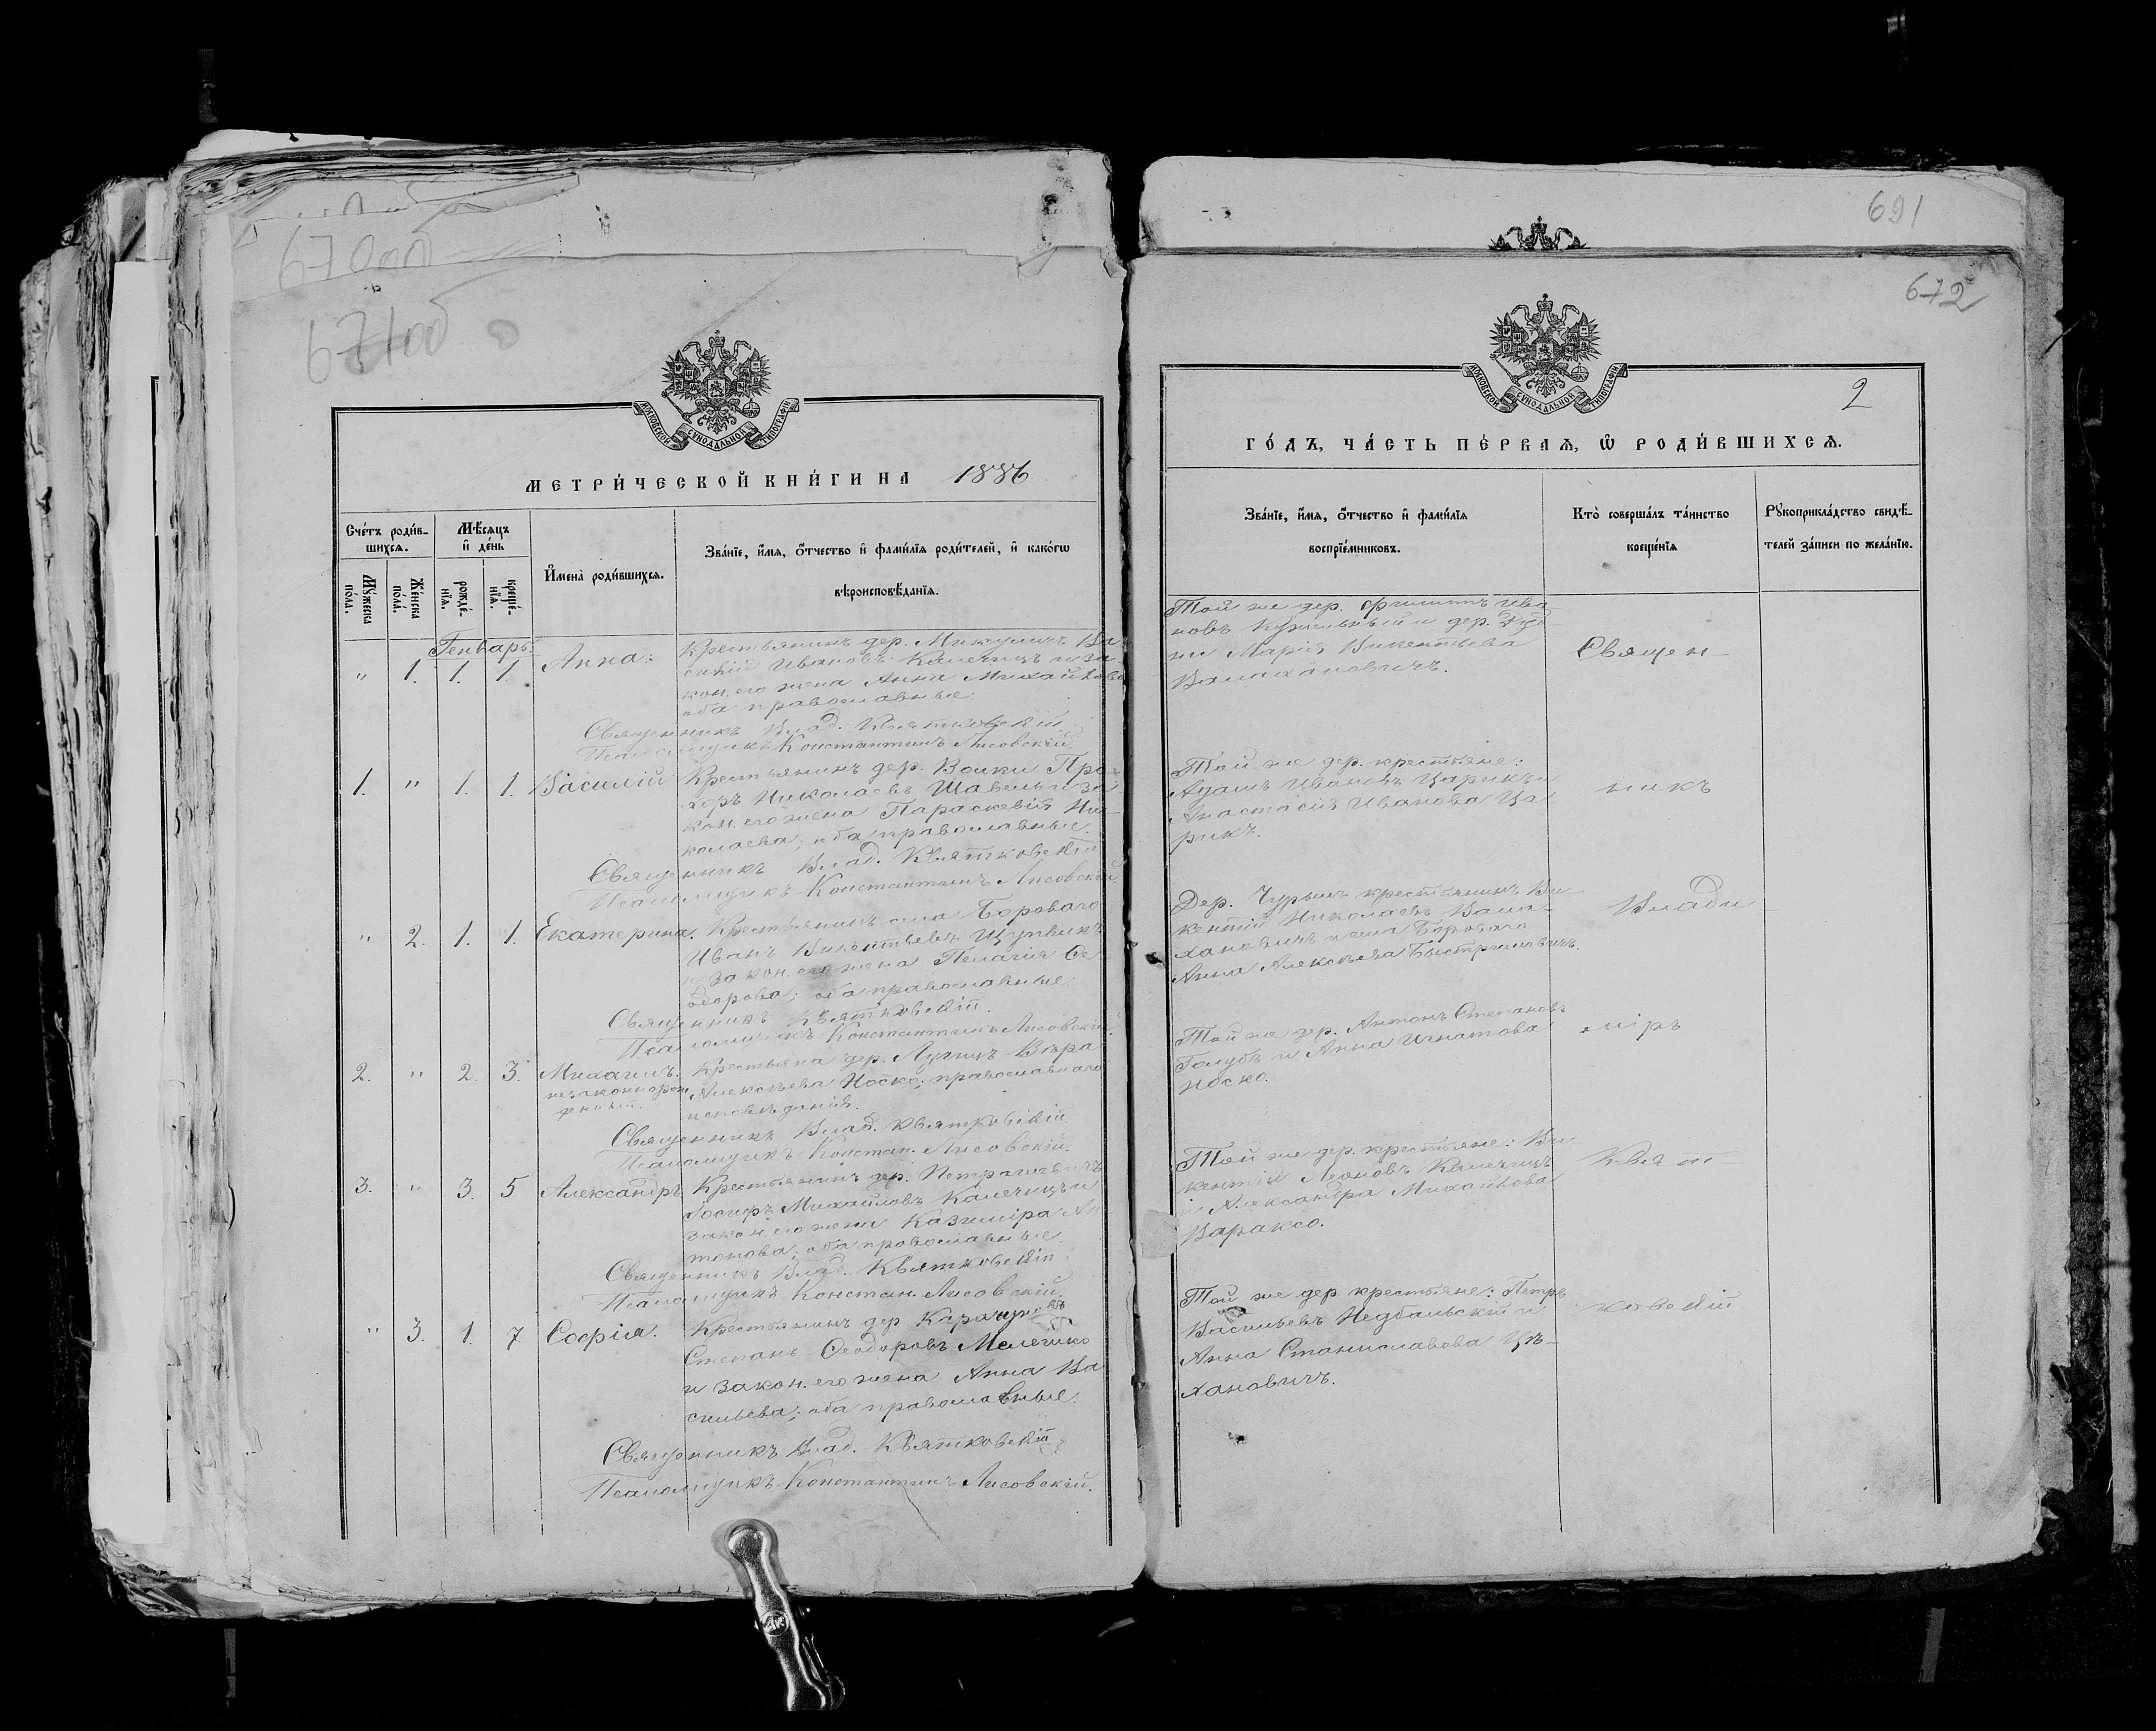 691
672
67об
671об
МОСКОВСКОЙ СѴНОДАЛЬНОЙ ТИПОГРАФІИ
МЕТРИ́ЧЕСКОЙ КНИ́ГИ НА 1886
Сче́тъ роди́в-
шихсѧ.
Мѣ́сѧцъ
и҆ де́нь
Мꙋ́жеска
по́ла.
Же́нска
по́ла.
рожде́-
нїѧ.
креще́-
нїѧ.
И҆мена̀ роди́вшихсѧ.
Зва́нїе, и҆́мѧ, ѻ҆́тчество и҆ фамѝлїѧ роди́телей, и҆ како́гѡ
вѣроисповѣ́данїѧ.
Генварь.
" 1. 1. 1. Анна.
Крестьянинъ дер. Микуличъ Ва-
силій Ивановъ Калечицъ и за-
кон. его жена Анна Михайлова
оба православные.
Священникъ Влад. Квятковскій
Псаломщикъ Константинъ Лисовскій.
1. " 1. 1. Василій
Крестьянинъ дер. Волки Про-
хоръ Николаевъ Шавель и за-
кон. его жена Параскевія Ни-
колаева; оба православные.
Священникъ Влад. Квятковскій
Псаломщикъ Константинъ Лисовскій.
" 2. 1. 1. Екатерина.
Крестьянинъ села Бороваго
Иванъ Викентьевъ
и закон. его жена Пелагія Ѳе-
одорова; оба православные.
Священникъ Квятковскій.
Псаломщикъ Константинъ Лисовскій.
2. " 2. 3. Михаилъ.
незаконнорож-
денный.
Крестьянка дер. Вѣра
Алексѣева Носко; православнаго
исповѣданія.
Священникъ Влад. Квятковскій
Псаломщикъ Констан. Лисовскій.
3. " 3. 5 Александръ
Крестьянинъ дер. Петрашевичъ
Іосифъ Михайловъ Калечицъ и
закон. его жена Казиміра Ан-
тонова; оба православные.
Священникъ Влад. Квятковскій
Псаломщикъ Констан. Лисовскій.
" 3. 1. 7 Софія.
Крестьянинъ дер
Степанъ Ѳеодоровъ Мелешко
и закон. его жена Анна Ва-
сильева; оба православные.
Священникъ Влад. Квятковскій
Псаломщикъ Константинъ Лисовскій.
МОСКОВСКОЙ СѴНОДАЛЬНОЙ ТИПОГРАФІИ
2
ГО́ДЪ, ЧА́СТЬ ПЕ́РВАѦ, Ѡ҆ РОДИ́ВШИХСѦ.
Зва́нїе, и҆́мѧ, ѻ҆́тчество и҆ фамѝлїѧ
воспрїе́мниковъ.
Кто̀ соверша́лъ та́инство
креще́нїѧ
Рꙋкоприкла́дство свидѣ́-
телей за́писи по жела́нїю.
Той же дер. Филиппъ Ива-
новъ и дер.
Марія Викентьева
Валахановичъ.
Той же дер. крестьяне:
Адамъ Ивановъ Царикъ и
Анастасія Иванова Ца-
рикъ.
Дер. Чурилъ крестьянинъ Ви-
кентій Николаевъ Вала-
хановичъ и села Борового
Анна Алексѣева Быстримовичъ.
Той же дер. Антонъ Степановъ
Голубъ и Анна Игнатова
Носко.
Той же дер. крестьяне: Ви-
кентій Леоновъ Калечицъ
и Александра Михайлова
Вараксо.
Той же дер. крестьяне: Петръ
Васильевъ Недбальскій и
Анна Станиславова Цѣ-
хановичъ.
Священ-
никъ
Влади-
міръ
Квят-
ковскій